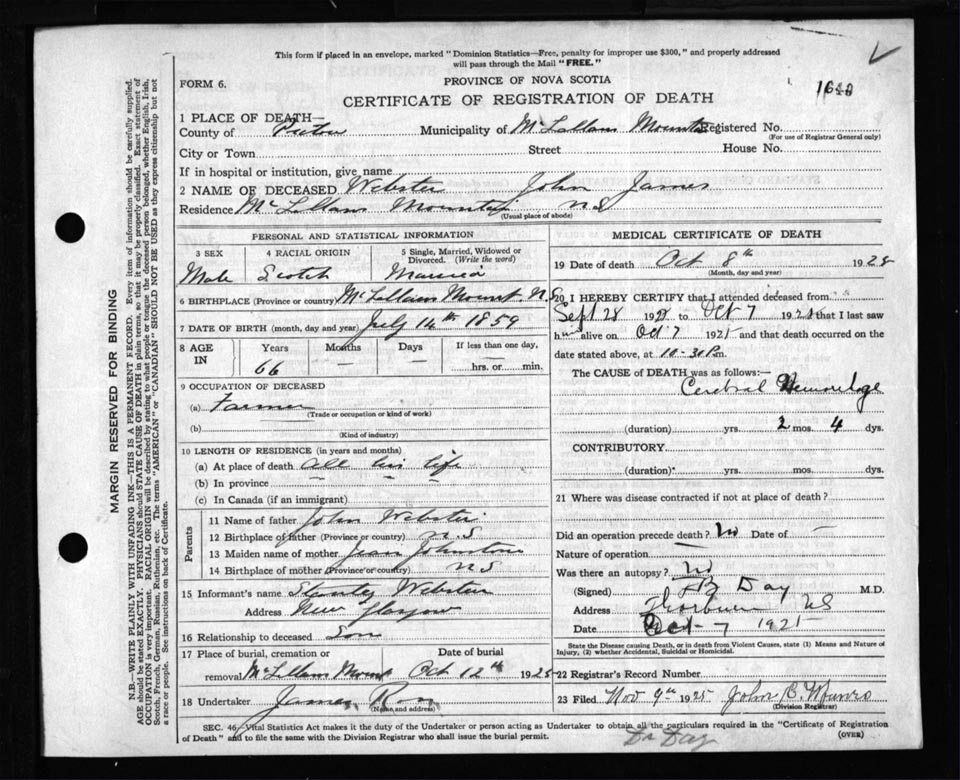 This form if placed in an envelope, marked "Dominion Statistics—Free, penalty for improper use $300," and properly addressed
will pass through the Mail "FREE."
FORM 6.
PROVINCE OF NOVA SCOTIA
CERTIFICATE OF REGISTRATION OF DEATH
1 PLACE OF DEATH—
County of Pictou Municipality of McLellans Mountain Registered No.
(For use of Registrar General only)
City or Town Street House No.
If in hospital or institution, give name
2 NAME OF DECEASED Webster John James
Residence McLellans Mountain N S
(Usual place of abode)
PERSONAL AND STATISTICAL INFORMATION
3 SEX 4 RACIAL ORIGIN 5 Single, Married, Widowed or Divorced. (Write the word)
Male Scotch Married
6 BIRTHPLACE (Province or country) McLellans Mount. N.S.
7 DATE OF BIRTH (month, day and year) July 14th 1859
8 AGE IN Years Months Days If less than one day,
66 — — hrs. or min.
9 OCCUPATION OF DECEASED
(a) Farmer
(Trade or occupation or kind of work)
(b)
(Kind of industry)
10 LENGTH OF RESIDENCE (in years and months)
(a) At place of death all his life
(b) In province — — —
(c) In Canada (if an immigrant)
Parents
11 Name of father John Webster
12 Birthplace of father (Province or country) N.S
13 Maiden name of mother Jean Johnstone
14 Birthplace of mother (Province or country) N S
15 Informant's name Stanley Webster
Address New Glasgow
16 Relationship to deceased Son
17 Place of burial, cremation or removal Date of burial
McLellans Mount Oct 12th 1925
18 Undertaker James Ross
(Name and address)
MEDICAL CERTIFICATE OF DEATH
19 Date of death Oct 8th 1925
(Month, day and year)
20 I HEREBY CERTIFY that I attended deceased from
Sept 28 1925 to Oct 7 1925 that I last saw
him alive on Oct 7 1925 and that death occurred on the
date stated above, at 10-30 Pm.
The CAUSE of DEATH was as follows:—
Cerebral Hemorrhage
(duration) yrs. 2 mos. 4 dys.
CONTRIBUTORY
(duration) yrs. mos. dys.
21 Where was disease contracted if not at place of death?
Did an operation precede death? No Date of —
Nature of operation
Was there an autopsy? No
(Signed) Day M.D.
Address Thorburn NS
Date Oct- 7 1925
State the Disease causing Death, or in death from Violent Causes, state (1) Means and Nature of
Injury, (2) whether Accidental, Suicidal or Homicidal.
22 Registrar's Record Number
23 Filed Nov 9th 1925 John B. Munro
(Division Registrar)
SEC. 46, Vital Statistics Act makes it the duty of the Undertaker or person acting as Undertaker to obtain all the particulars required in the "Certificate of Registration
of Death" and to file the same with the Division Registrar who shall issue the burial permit.
(OVER)
Dr Day
MARGIN RESERVED FOR BINDING
N.B.—WRITE PLAINLY WITH UNFADING INK—THIS IS A PERMANENT RECORD. Every item of information should be carefully supplied.
AGE should be stated EXACTLY. PHYSICIANS should STATE CAUSE OF DEATH in plain terms, so that it may be properly classified. Exact statement of
OCCUPATION is very important. RACIAL ORIGIN will be described by stating to what people or tongue the deceased person belonged, whether English, Irish,
Scotch, French, German, Russian, Ruthenian, etc. The terms "AMERICAN" or "CANADIAN" SHOULD NOT BE USED as they express citizenship but not
a race or people. See instructions on back of Certificate.